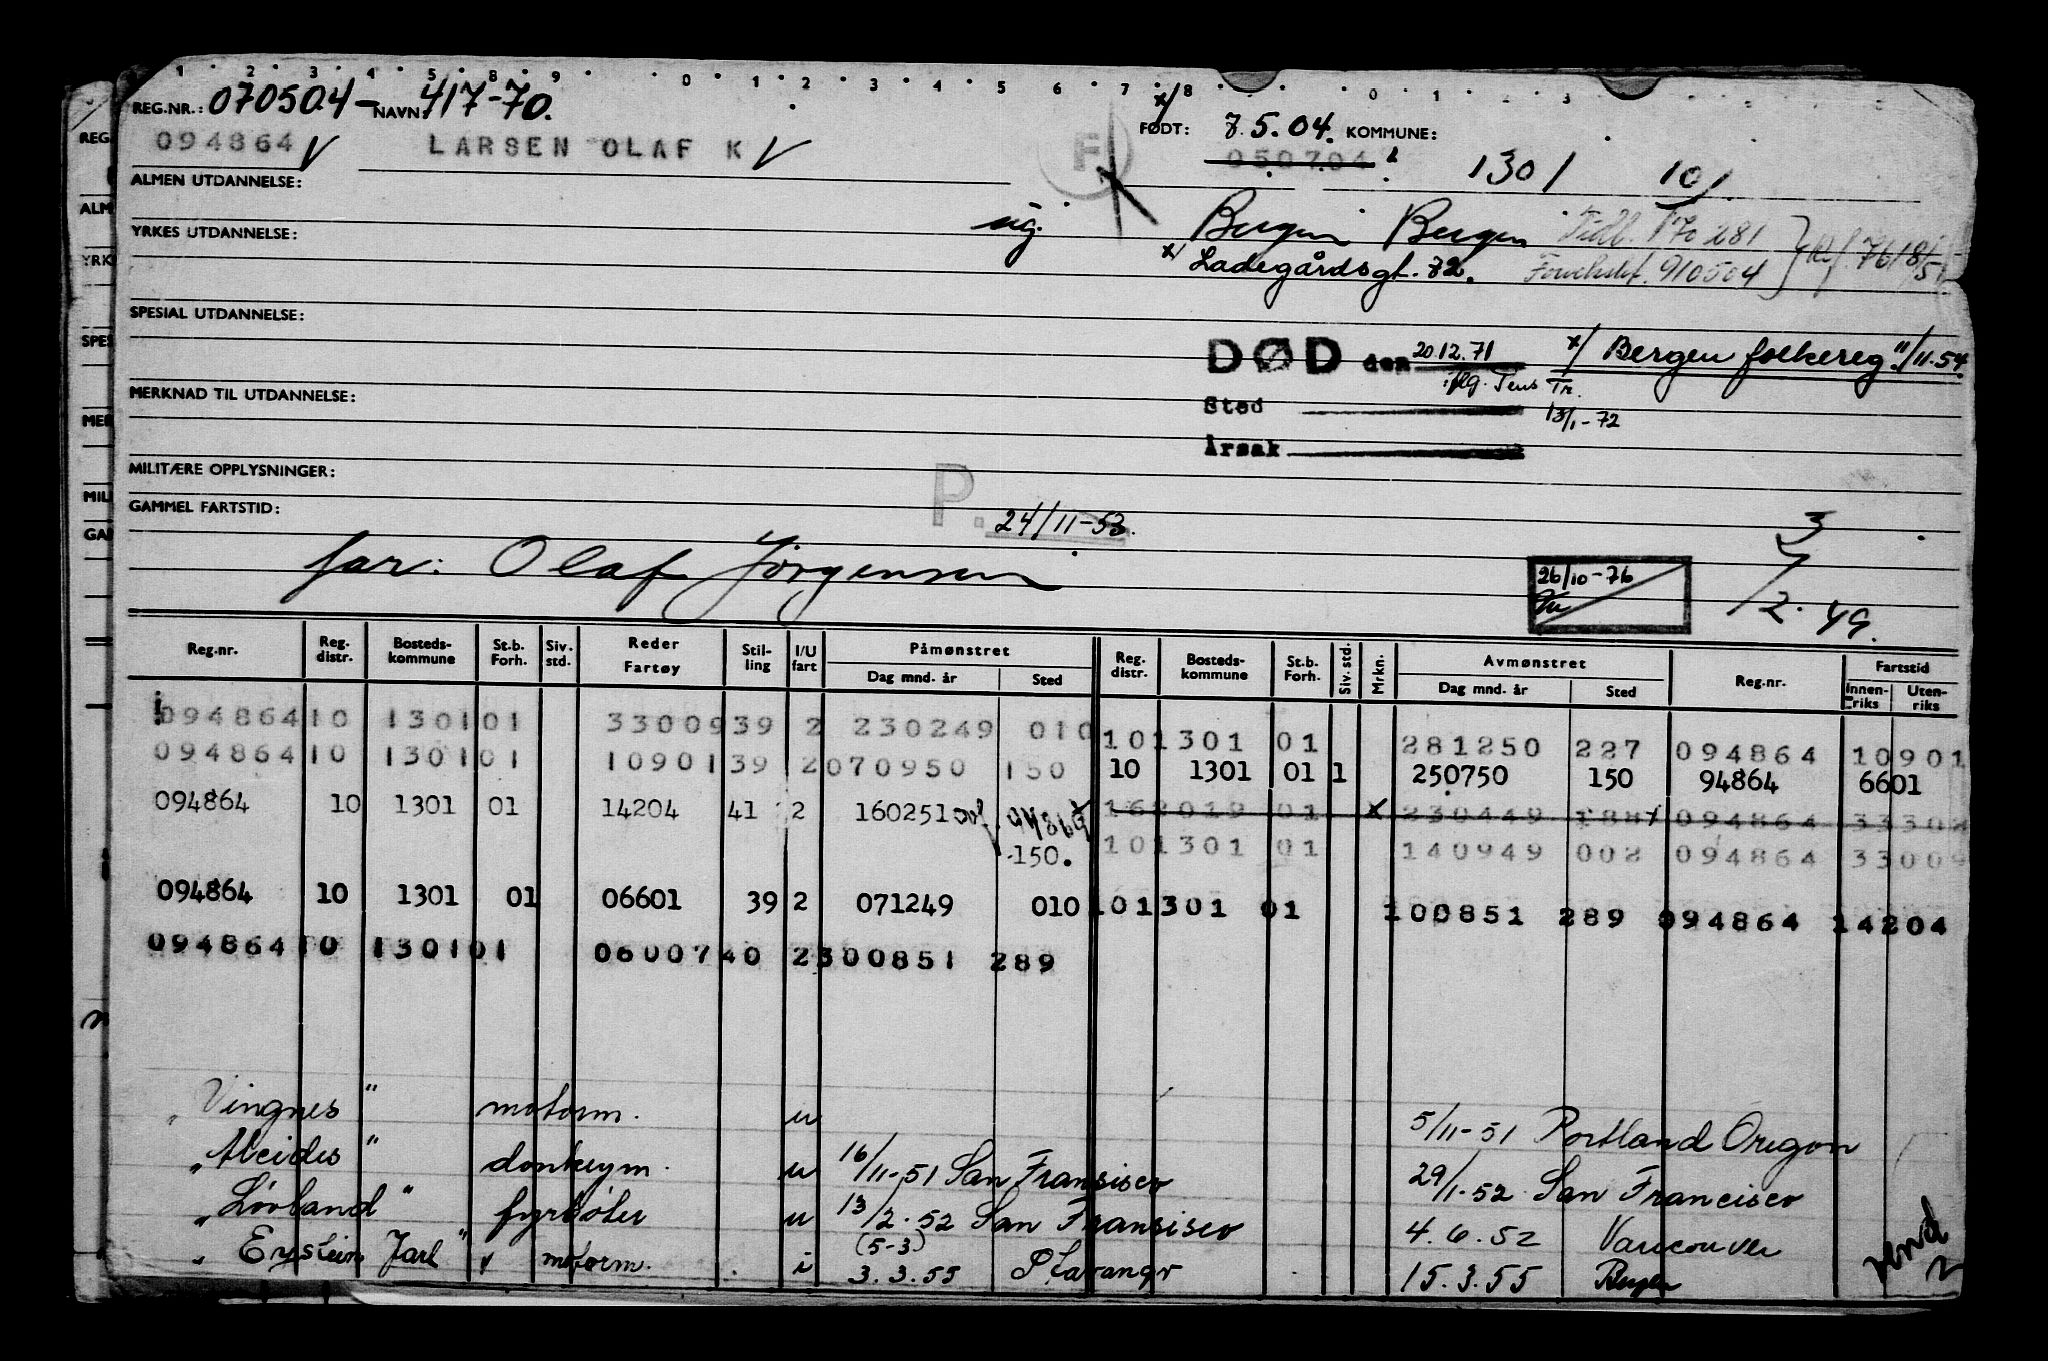 1 2 3 4 5 8 9 0 1 2 3 4 5 6 7 8 0 1 3
REG.NR.: 070504- NAVN: 417-70. FØDT: 7.5.04. KOMMUNE:
094864 V LARSEN OLAF K V F 050704 1301 101
ALMEN UTDANNELSE:
YRKES UTDANNELSE: ug. Bergen Bergen Tidl. 170281
x/ Ladegårdsgt. 72. 910504
SPESIAL UTDANNELSE:
DØD den 20.12.71 x/ Bergen folkereg. 11/11.54.
iflg. Tens Tr.
MERKNAD TIL UTDANNELSE: Sted 13/1-72
Årsak
MILITÆRE OPPLYSNINGER:
GAMMEL FARTSTID: P. 24/11-53. 3
far: Olaf Jörgensen 26/10-76 /2.49.
Reg.nr. Reg. distr. Bosteds-kommune St.b. Forh. Siv. std. Reder Fartøy Stil-ling I/U fart Påmønstret Dag mnd. år Sted Reg. distr. Bosteds-kommune St.b. Forh. Siv. std. Mrkn. Avmønstret Dag mnd. år Sted Reg.nr. Fartstid Innen-riks Uten-riks
094864 10 1301 01 33009 39 2 230249 010 10 1301 01 281250 227 094864 10901
094864 10 1301 01 10901 39 2 070950 150 10 1301 01 1 250750 150 94864 6601
094864 10 1301 01 14204 41 2 160251 162019 01 x 230449 188 094864 33302
150. 10 1301 01 140949 002 094864 33009
094864 10 1301 01 06601 39 2 071249 010 10 1301 01 100851 289 094864 14204
094864 10 1301 01 06007 40 2 300851 289
"Vingnes" motorm. u 5/11-51 Portland Oregon
"Alcides" donkeym. u 16/11-51 San Fransisco 29/1-52 San Francisco
"Lövland" fyrböter u 13/2.52 San Fransisco 4.6.52 Vancouver
(5-3)
"Eystein Jarl" motorm. i 3.3.55 Stavanger 15.3.55 Bergen
vend